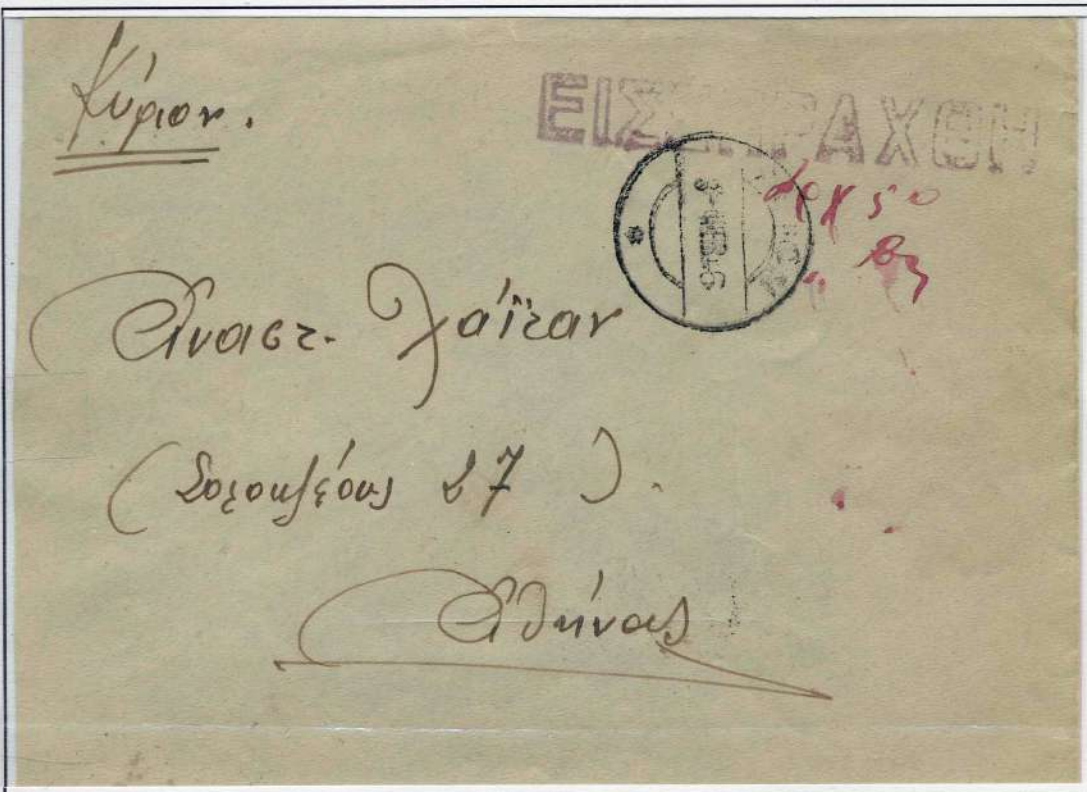 Κύριον.
ΕΙΣΕΠΡΑΧΘΗ
50
Αναστ. Λάϊταν
(Σοφοκλέους 27).
Αθήνας